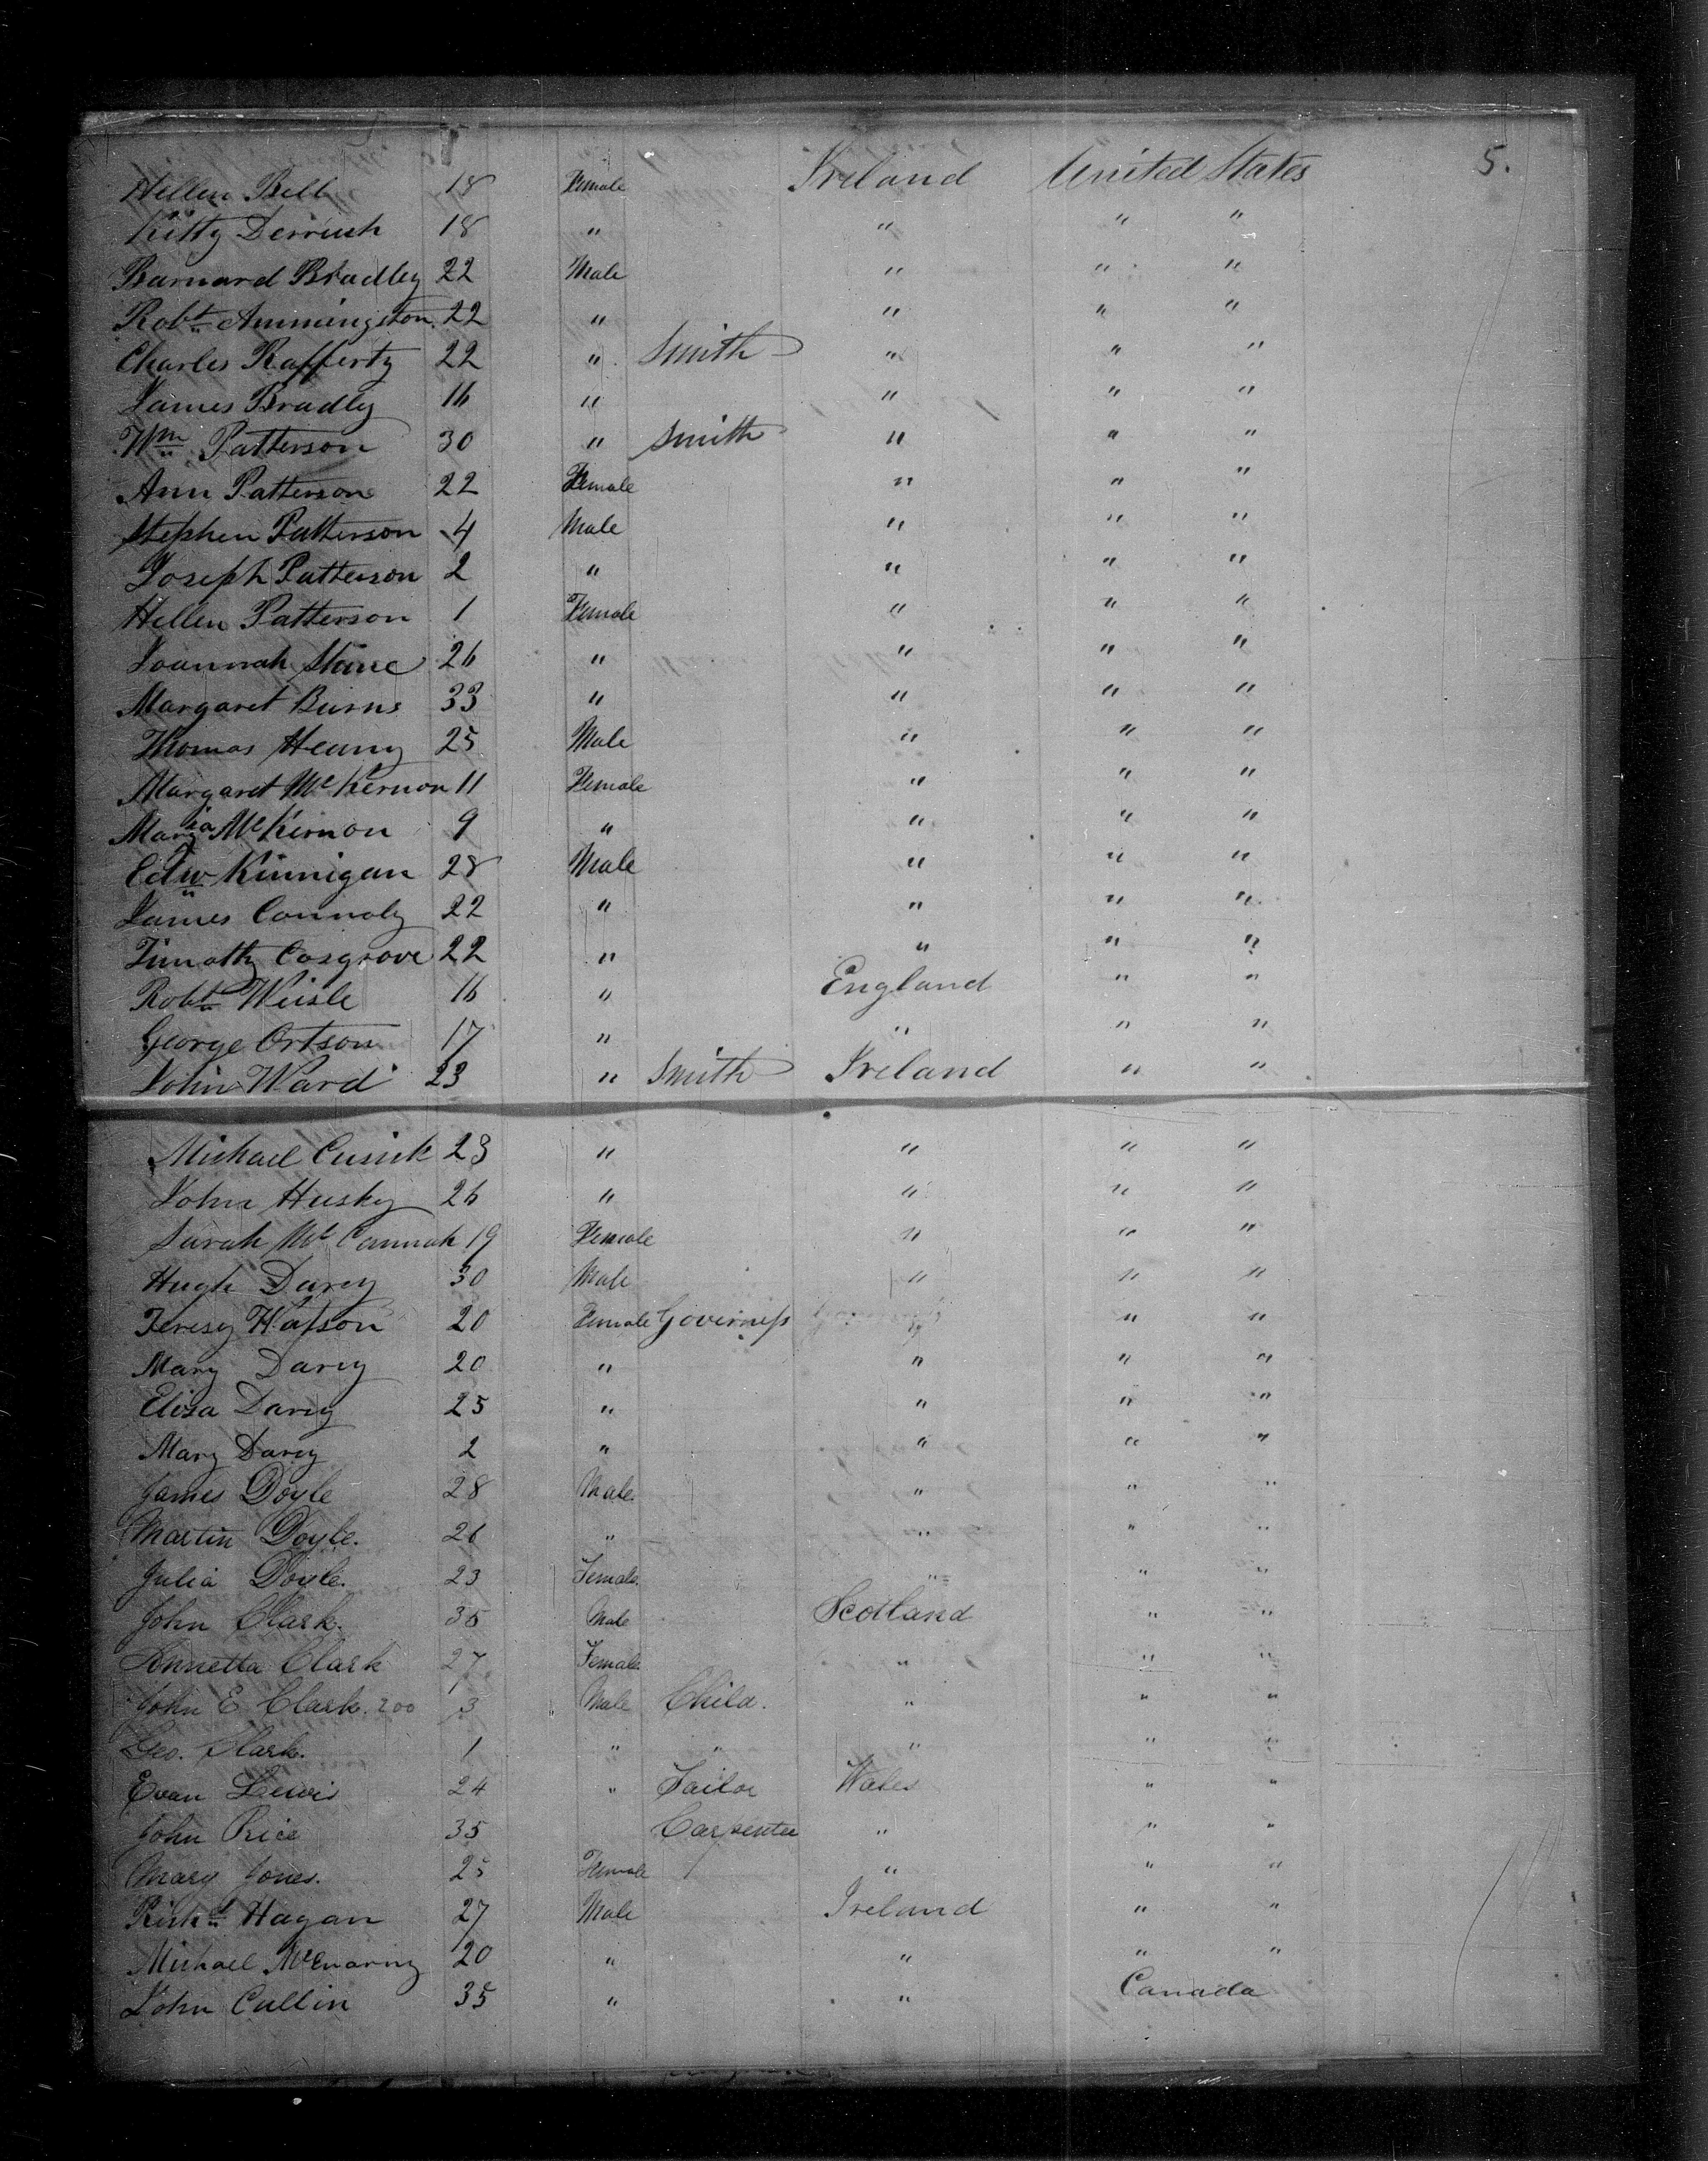 5.
Hellen Bell 18 Female Ireland United States
Kitty Derrick 18 " " " "
Barnard Bradley 22 Male " " "
Robt Ammingston 22 " " " "
Charles Rafferty 22 " Smith " " "
James Bradly 16 " " " "
Wm Patterson 30 " Smith " " "
Ann Patterson 22 Female " " "
Stephen Patterson 4 Male " " "
Joseph Patterson 2 " " " "
Hellen Patterson 1 Female " " "
Joannah 26 " " " "
Margaret Burns 33 " " " "
Thomas Heany 25 Male " " "
Margaret McKernon 11 Female " " "
Maria McKernon 9 " " " "
Edw Kinnigan 28 Male " " "
James Connoly 22 " " " "
Timothy Cosgrove 22 " " " "
Robt Weisle 16 " England " "
George Ortson 17 " " " "
John Ward 23 " Smith Ireland " "
Michael Cusick 23 " " " "
John Husky 26 " " " "
Sarah McCannah 19 Female " " "
Hugh Darcy 30 Male " " "
Teresy Watson 20 Female Governess " " "
Mary Darcy 20 " " " "
Eliza Darcy 25 " " " "
Mary Darcy 2 " " " "
James Doyle 28 Male " " "
Martin Doyle. 26 " " " "
Julia Doyle. 23 Female. " " "
John Clark. 35 Male Scotland " "
Annetta Clark 27 Female " " "
John E Clark. 200 3 Male Child. " " "
Geo. Clark. 1 " " " " "
Evan Lewis 24 " Tailor Wales " "
John Price 35 Carpenter " " "
Mary Jones. 25 Female " " "
Richd Hagan 27 Male Ireland " "
Michael McEnarny 20 " " " "
John Cullin 35 " " Canada